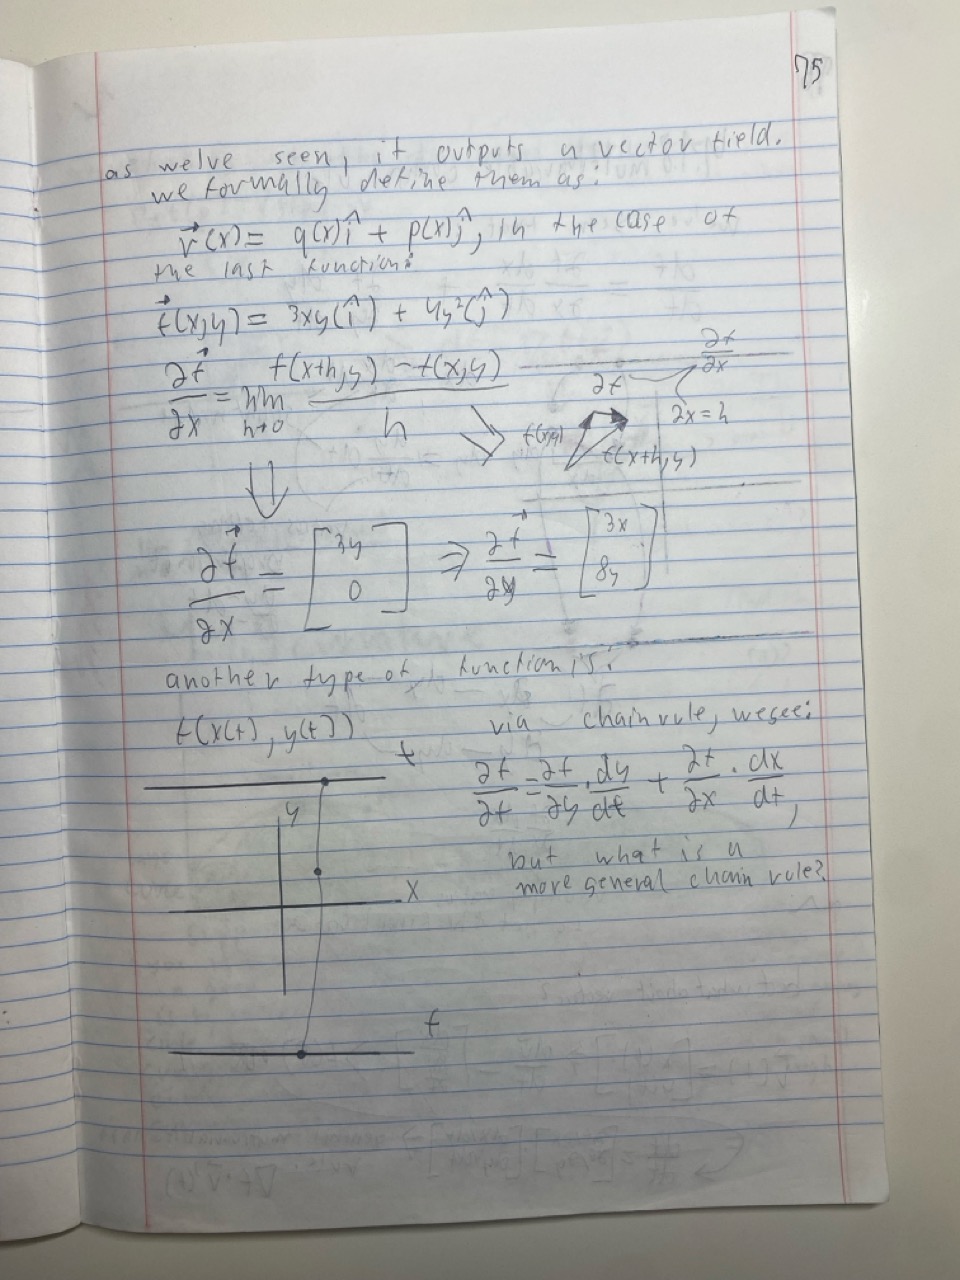 75
as we've seen, it outputs a vector field.
we formally define them as:
v⃗(x) = q(x)î + p(x)ĵ, in the case of
the last function:
f⃗(x,y) = 3xy(î) + 4y²(ĵ)
∂f⃗/∂x = lim h→0 (f(x+h,y) - f(x,y))/h
∂f
∂f/∂x
∂x=h
f(x,y)
f(x+h,y)
∂f⃗/∂x = [3y 0] ⇒ ∂f⃗/∂y = [3x 8y]
another type of function is:
f(x(t), y(t))
via chain rule, we see:
∂f/∂t = ∂f/∂y · dy/dt + ∂f/∂x · dx/dt,
but what is a
more general chain rule?
t
y
x
f